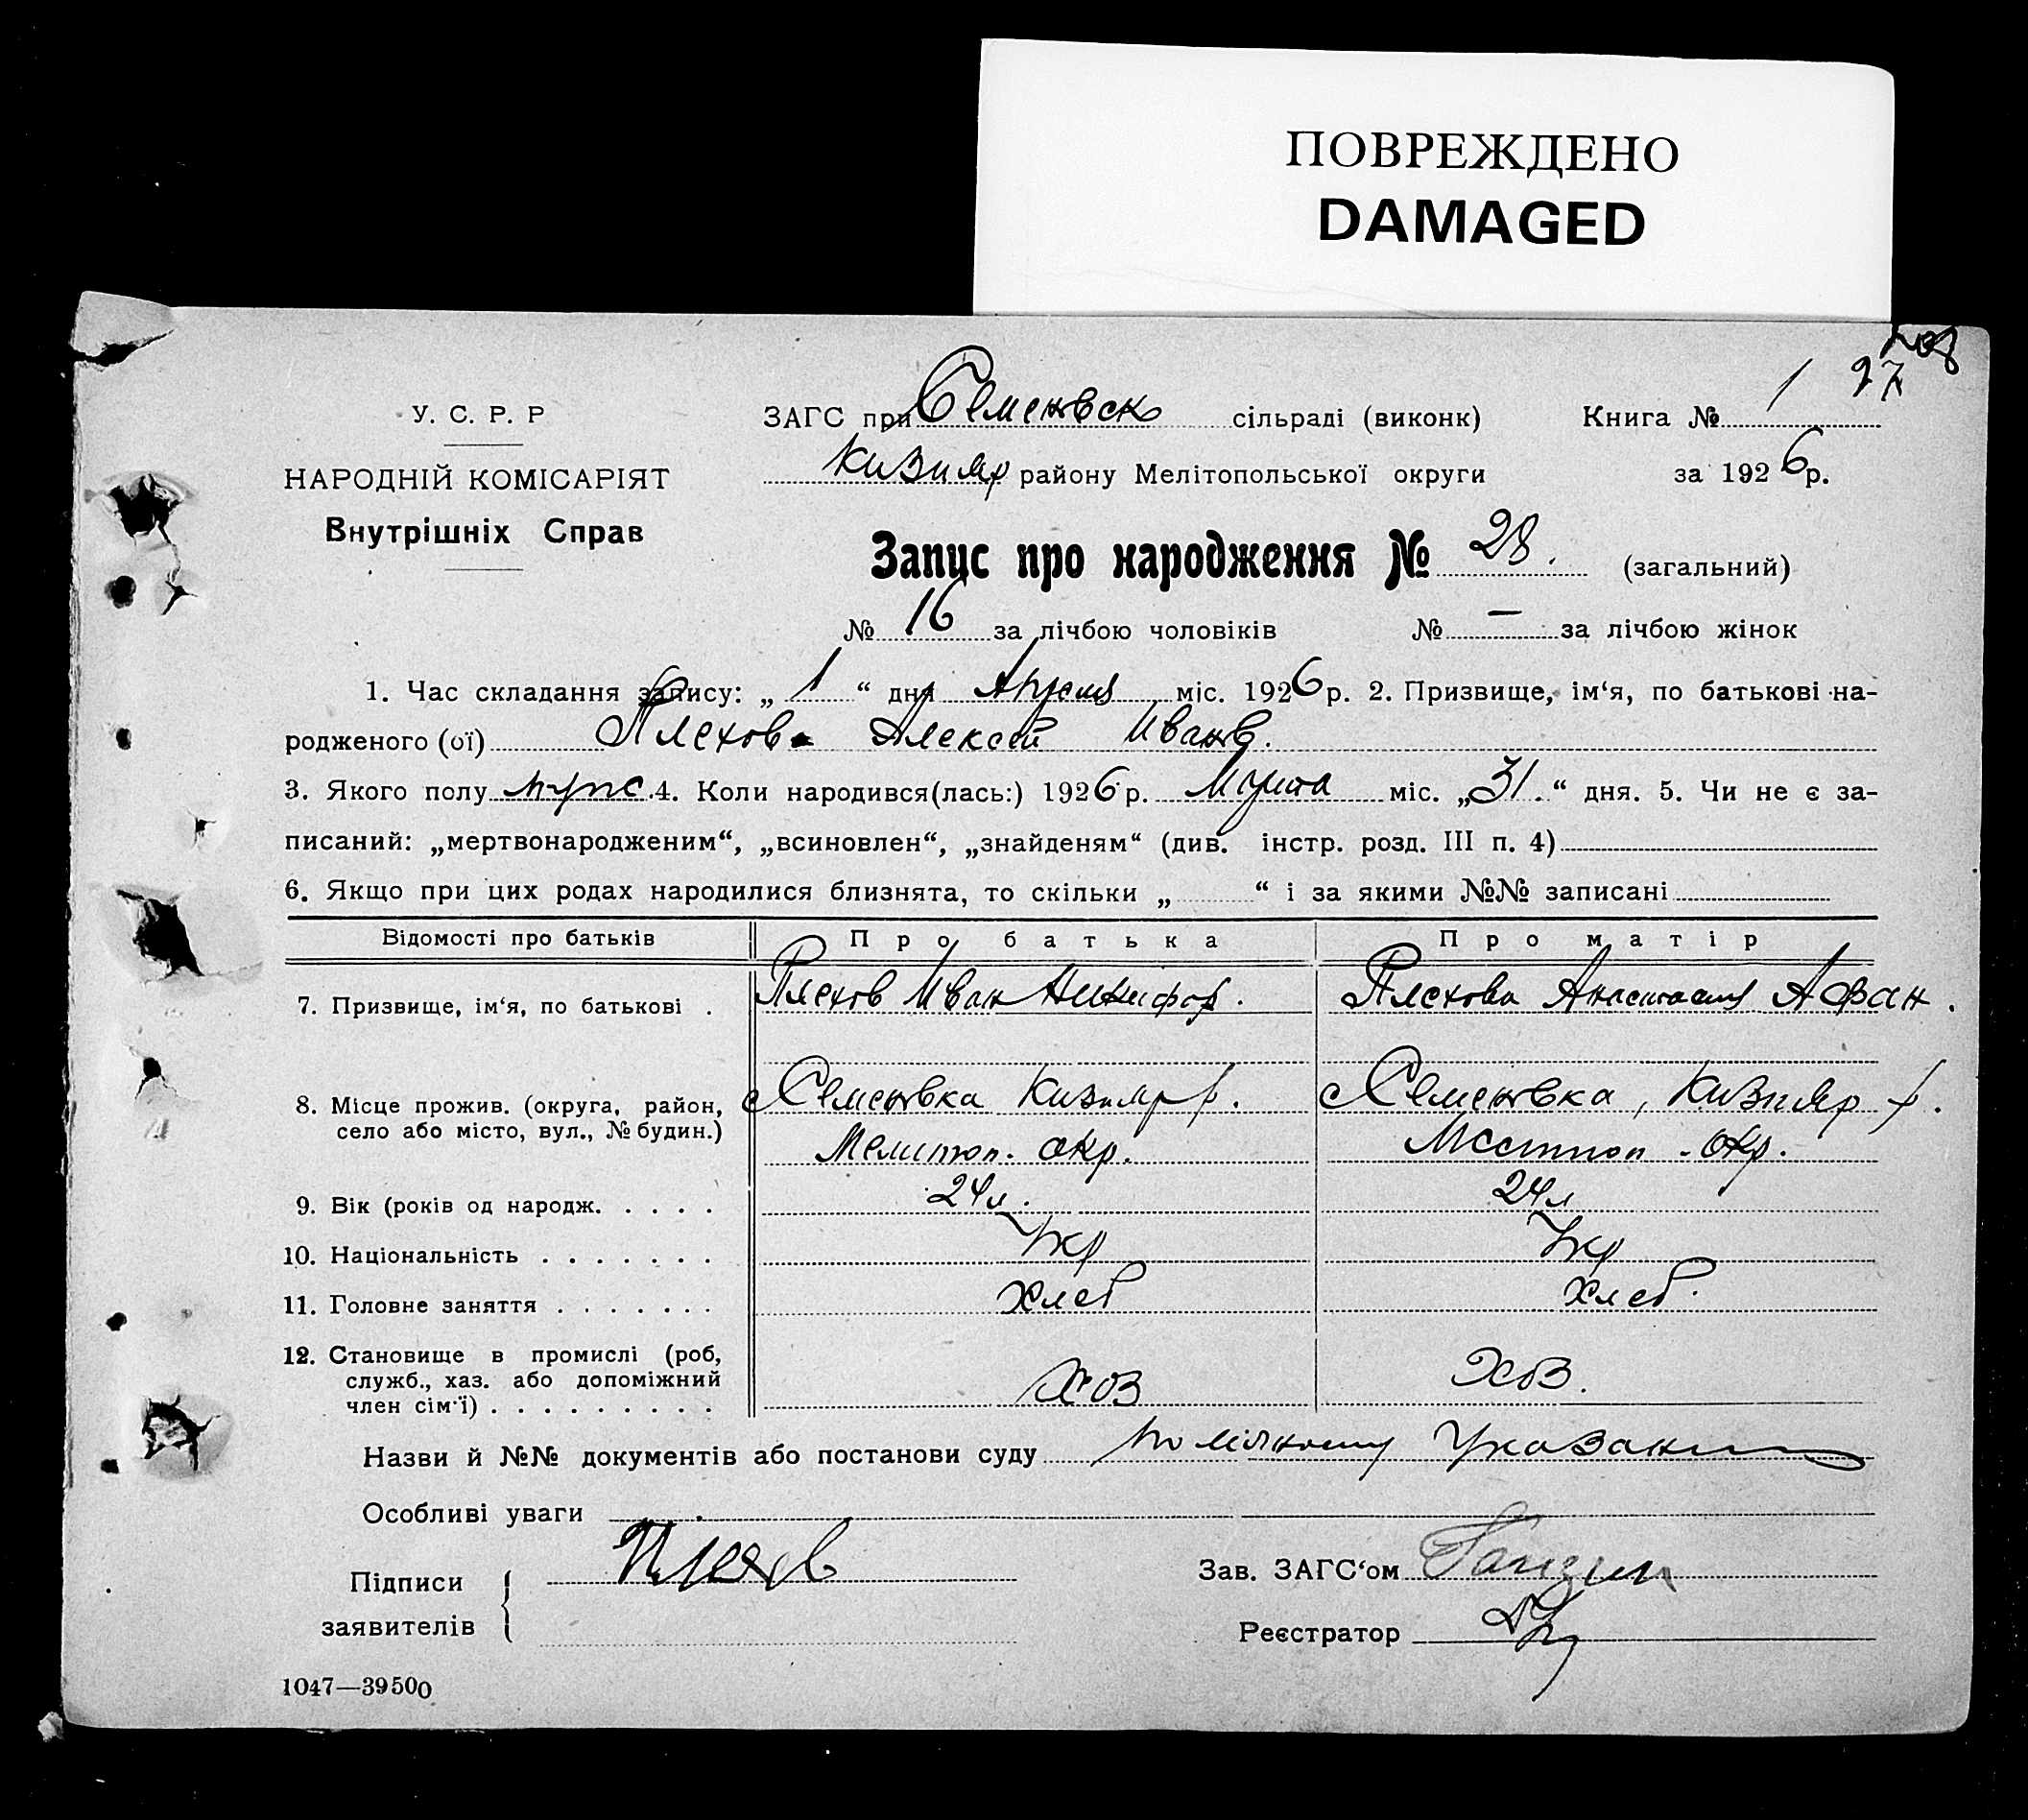 ПОВРЕЖДЕНО
DAMAGED
У. С. Р. Р
НАРОДНІЙ КОМІСАРІЯТ
Внутрішніх Справ
ЗАГС при Семеновск сільраді (виконк) Книга № 1
Кизияр району Мелітопольської округи за 1926 р.
Запис про народження № 28. (загальний)
№ 16 за лічбою чоловіків № — за лічбою жінок
1. Час складання запису: „ 1 “ дня Апреля міс. 1926 р. 2. Призвище, ім‘я, по батькові на-
родженого (ої) Плехов Алексей Иванв.
3. Якого полу 4. Коли народився(лась:) 1926 р. Марта міс. „31.“ дня. 5. Чи не є за-
писаний: „мертвонародженим“, „всиновлен“, „знайденям“ (див. інстр. розд. III п. 4)
6. Якщо при цих родах народилися близнята, то скільки „ “ і за якими №№ записані
Відомості про батьків Про батька Про матір
7. Призвище, ім‘я, по батькові . Плехов Иван Никифор. Плехова Анастасия Афан.
8. Місце прожив. (округа, район, село або місто, вул., № будин.) с Семеновка Кизияр р. с Семеновка, Кизияр р.
Мелитоп. окр. Мелитоп. окр.
9. Вік (років од народж. . . . . 24 л. 24 л
10. Національність . . . . . . . Укр Укр
11. Головне заняття . . . . . . . хлеб хлеб.
12. Становище в промислі (роб,
служб., хаз. або допоміжний
член сім‘ї) . . . . . . . . . Хоз Хоз.
Назви й №№ документів або постанови суду
Особливі уваги
Підписи Плехов Зав. ЗАГС‘ом
заявителів Реєстратор
1047—39500